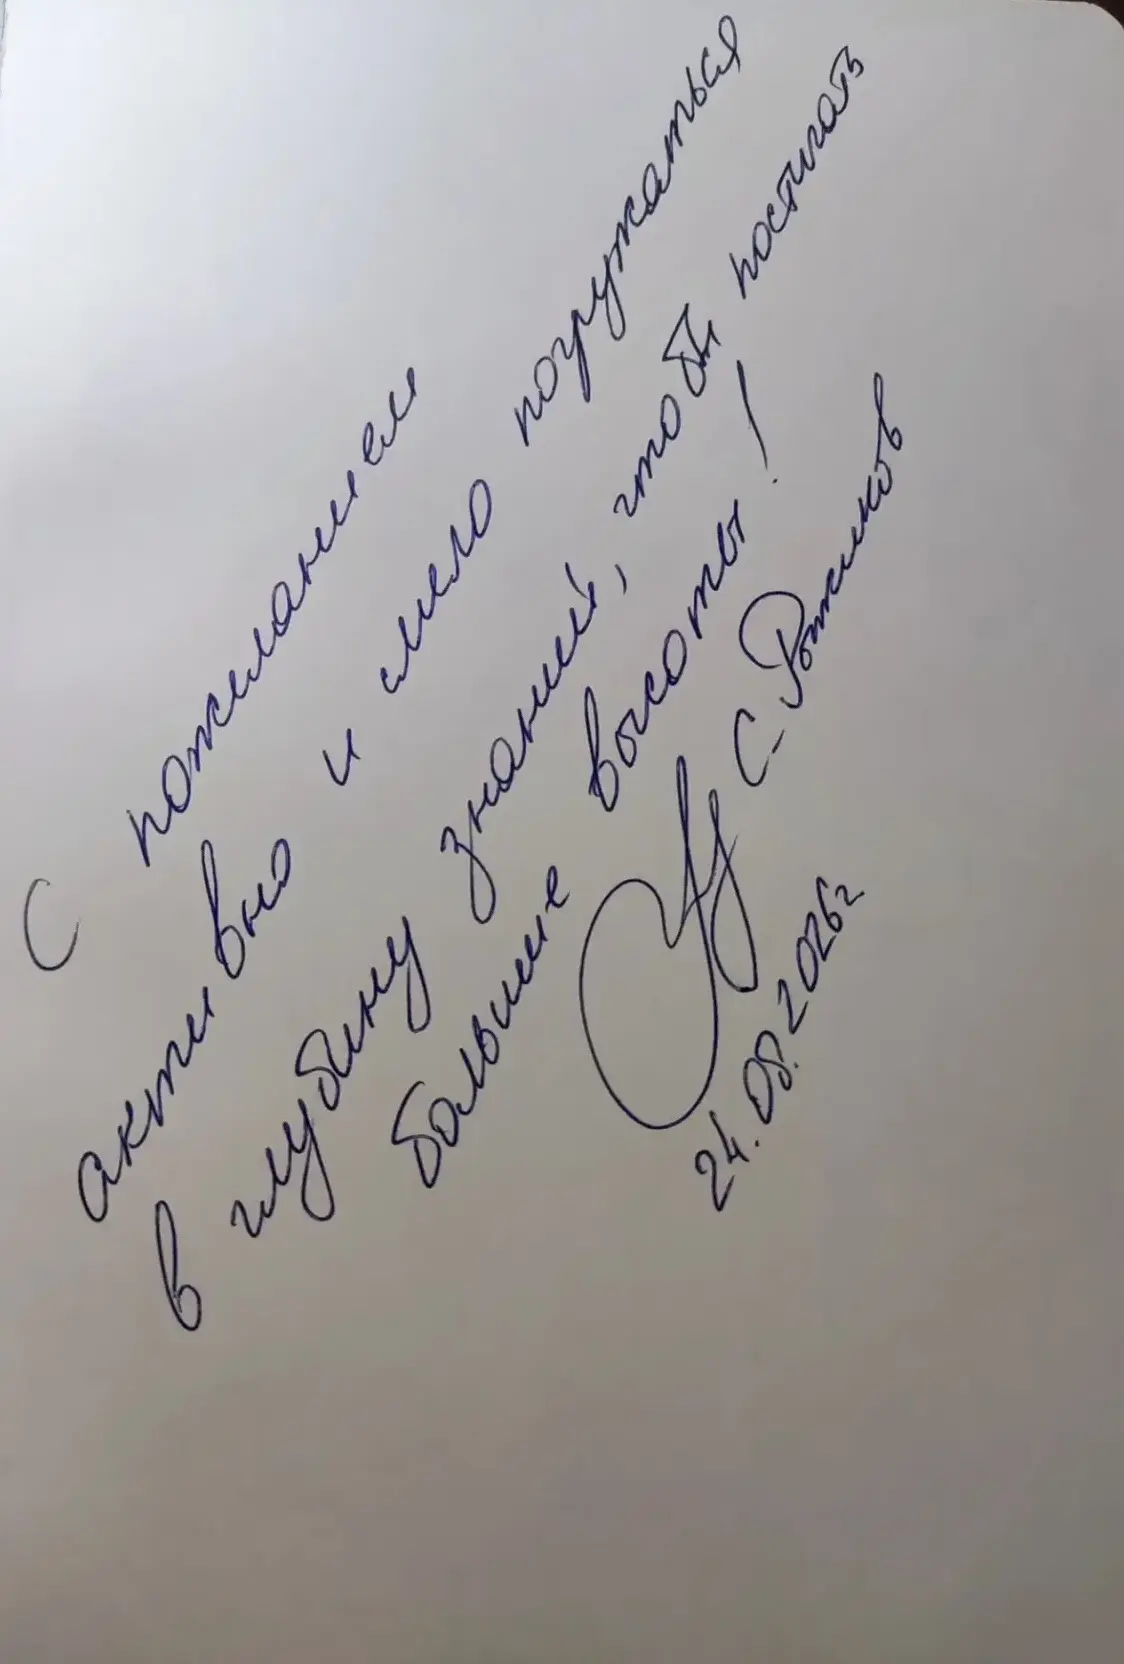 С пожеланием
активно и смело погружаться
в глубину знаний, чтобы постигать
большие высоты!
С. Ротиков
24.08.2026г